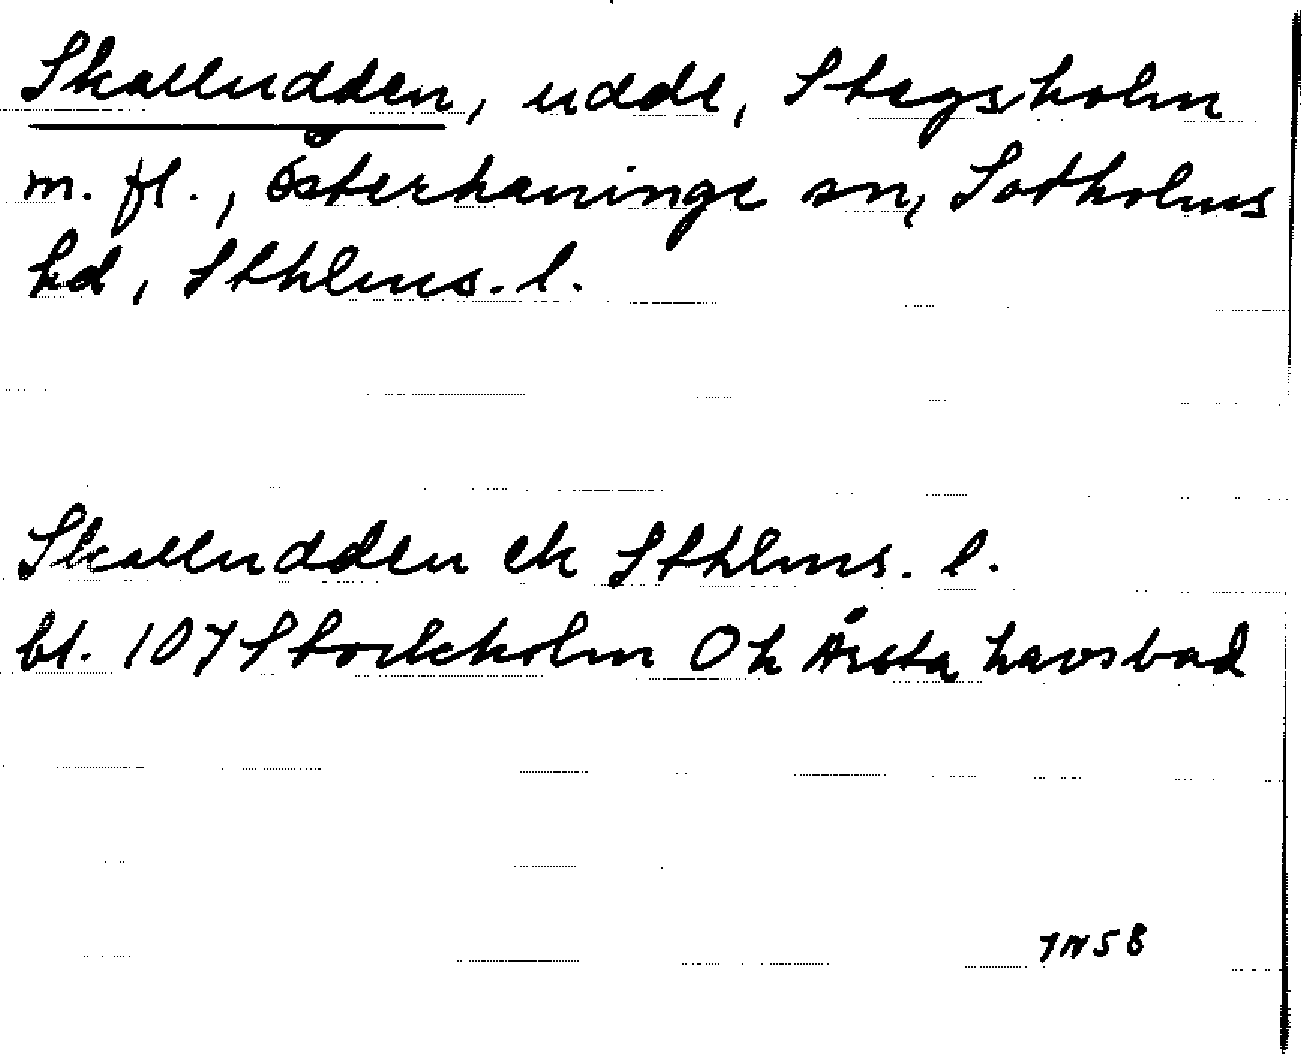 Skalludden, udde, Stegsholm
m. fl., Österhaninge sn, Sotholms
hd, Sthlms. l.
Skalludden ek Sthlms. l.
bl. 107 Stockholm Oh Årsta havsbad
7N5B